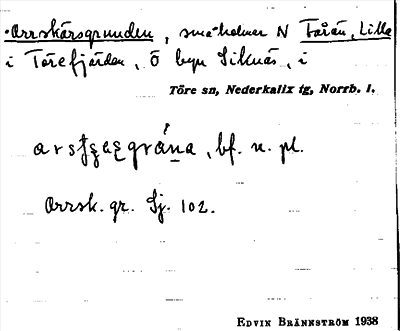 Orrskärsgrunden, små holmar N Fårön, Lilla
i Törefjärden, Ö byn Siknäs, i
Töre sn, Nederkalix tg, Norrb. l.
bf. n. pl.
Orrsk. gr. Sj. 102.
EDVIN BRÄNNSTRÖM 1938